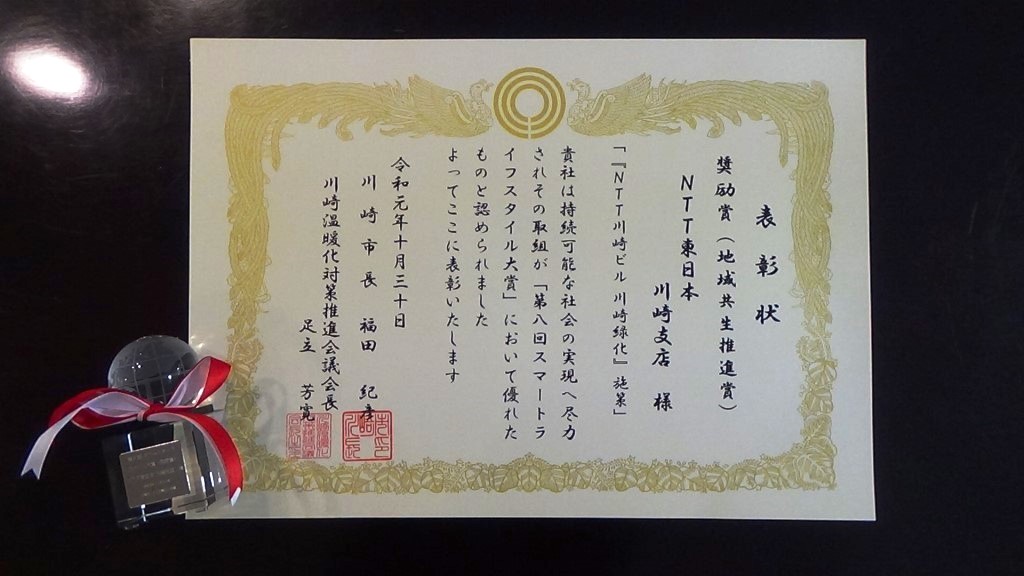 表彰状
奨励賞(地域共生推進賞)
NTT東日本
川崎支店 様
「『NTT川崎ビル 川崎緑化』施策」
貴社は持続可能な社会の実現へ尽力
されその取組が「第八回スマートラ
イフスタイル大賞」において優れた
ものと認められました
よってここに表彰いたします
令和元年十月三十日
川崎市長 福田 紀彦
川崎温暖化対策推進会議会長
足立 芳寛